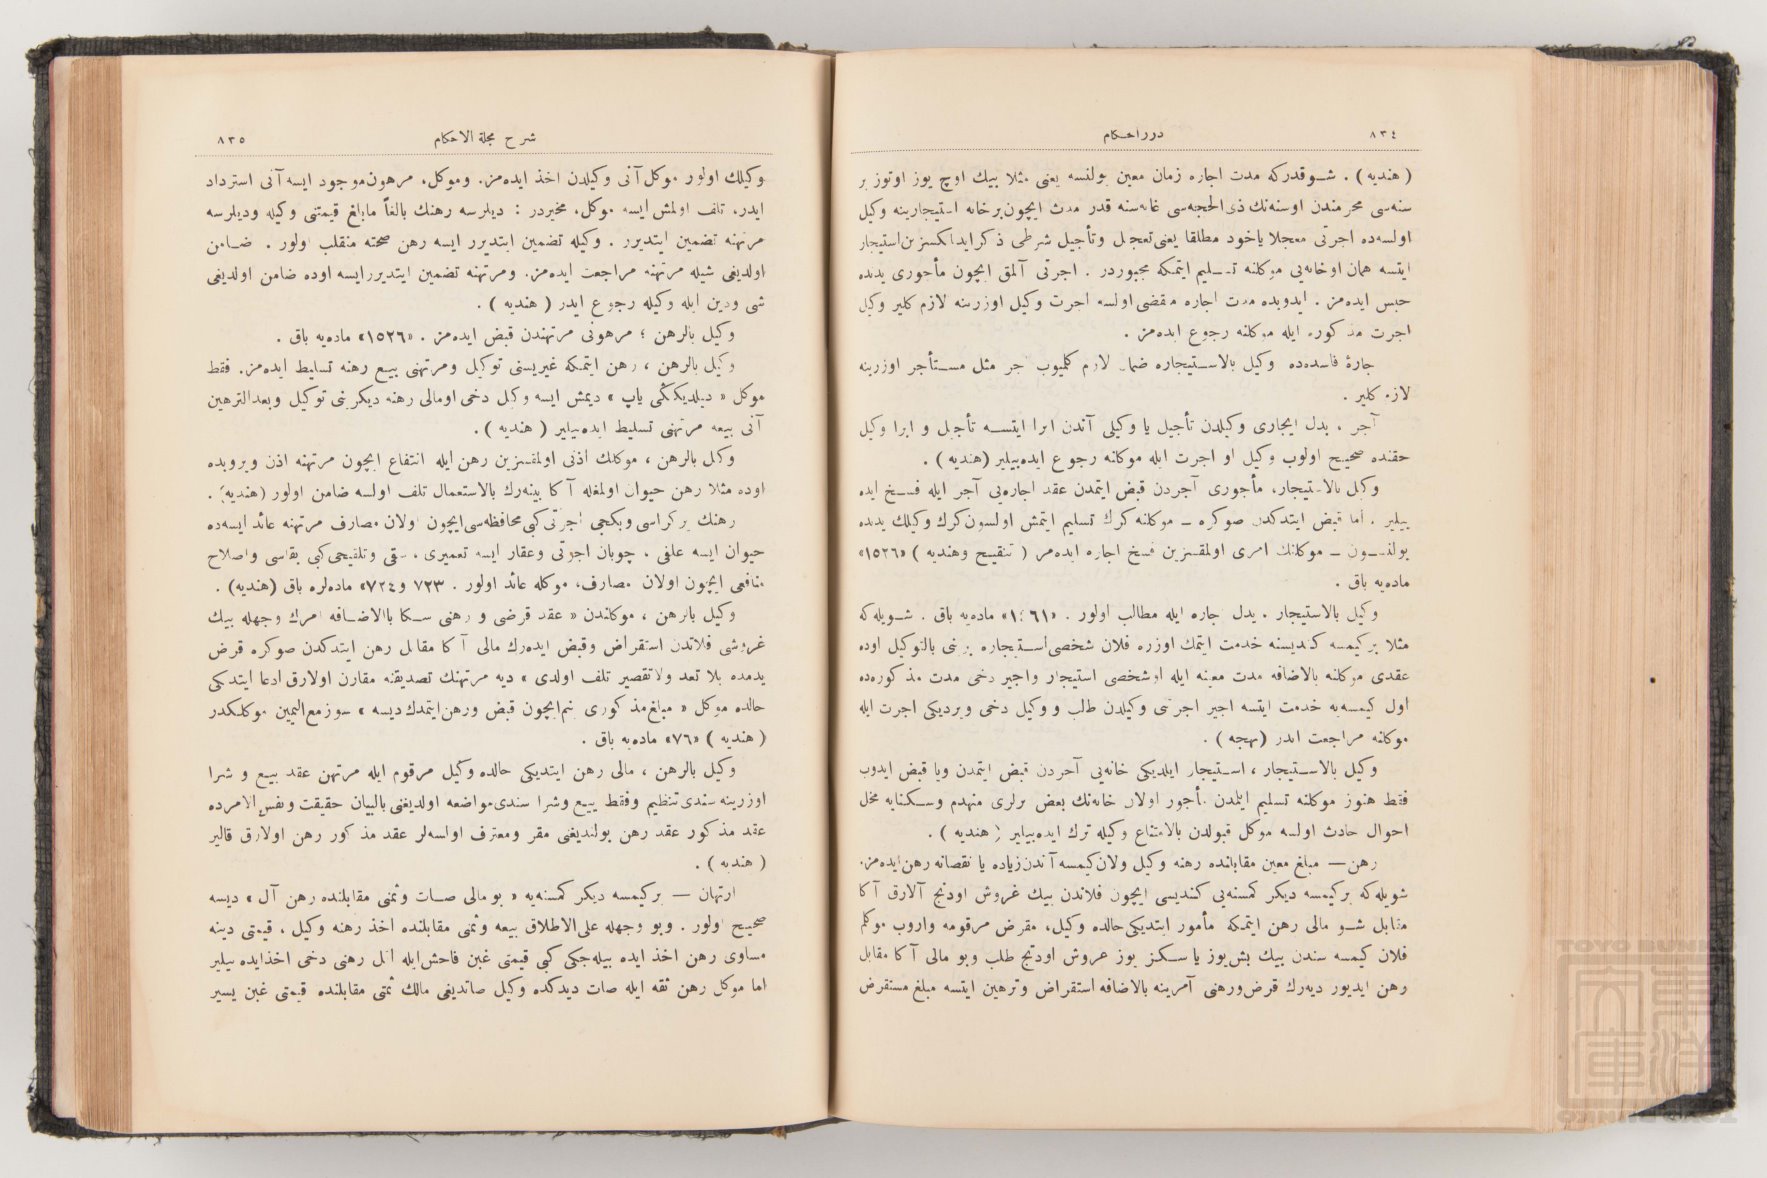 ٨٣٤
درر احكام
( هنديه ) . شوقدركه مدت اجاره زمان معين بولنسه يعنى مثلا بيك اوچ يوز اوتوز بر
سنه‌سى محرمندن اوسنه‌نك ذى‌الحجه‌سى غايه‌سنه قدر مدت ايچون برخانه استيجارينه وكيل
اولسه‌ده اجرتى معجلا ياخود مطلقا يعنى تعجيل وتأجيل شرطى ذكر ايدلكسزين استيجار
ايتسه همان اوخانه‌يى موكلنه تسليم ايتمكه مجبوردر . اجرتى آلمق ايچون مأجورى يدنده
حبس ايده‌مز . ايدوبده مدت اجاره منقضى اولسه اجرت وكيل اوزرينه لازم كلير وكيل
اجرت مذكوره ايله موكلنه رجوع ايده‌مز .
اجارۀ فاسده‌ده وكيل بالاستيجاره ضمان لازم كلميوب اجر مثل مستأجر اوزرينه
لازم كلير .
آجر ، بدل ايجارى وكيلدن تأجيل يا وكيلى آندن ابرا ايتسه تأجيل و ابرا وكيل
حقنده صحيح اولوب وكيل او اجرت ايله موكلنه رجوع ايده‌بيلير (هنديه ) .
وكيل بالاستيجار، مأجورى آجردن قبض ايتمدن عقد اجاره‌يى آجر ايله فسخ ايده
بيلير . اما قبض ايتدكدن صوكره ــ موكلنه كرك تسليم ايتمش اولسون كرك وكيلك يدنده
بولنسون ــ موكلنك امرى اولمقسزين فسخ اجاره ايده‌مز ( تنقيح وهنديه ) «١٥٢٦»
ماده‌يه باق .
وكيل بالاستيجار . بدل اجاره ايله مطالب اولور . «١٤٦١» ماده‌يه باق . شويله‌كه
مثلا بر كيمسه كنديسنه خدمت ايتمك اوزره فلان شخصى استيجاره برينى بالتوكيل اوده
عقدى موكلنه بالاضافه مدت معينه ايله اوشخصى استيجار واجير دخى مدت مذكوره‌ده
اول كيمسه‌يه خدمت ايتسه اجير اجرتنى وكيلدن طلب و وكيل دخى ويرديكى اجرت ايله
موكلنه مراجعت ايدر (بهجه ) .
وكيل بالاستيجار ، استيجار ايلديكى خانه‌يى آجردن قبض ايتمدن ويا قبض ايدوب
فقط هنوز موكلنه تسليم ايلمدن مأجور اولان خانه‌نك بعض يرلرى منهدم وسكنايه مخل
احوال حادث اولسه موكل قبولدن بالامتناع وكيله ترك ايده‌بيلير ( هنديه ) .
رهن — مبلغ معين مقابلنده رهنه وكيل اولان كيمسه آندن زياده يا نقصانه رهن ايده‌مز.
شويله‌كه بر كيمسه ديكر كمسنه‌يى كنديسى ايچون فلاندن بيك غروش اودنج آلارق آكا
مقابل شو مالى رهن ايتمكه مأمور ايتديكى حالده وكيل، مقرض مرقومه واروب موكلم
فلان كيمسه سندن بيك بش يوز يا سكز يوز غروش اودنج طلب وبو مالى آكا مقابل
رهن ايديور ديه‌رك قرض ورهنى آمرينه بالاضافه استقراض وترهين ايتسه مبلغ مستقرض
شرح مجلة الاحكام
٨٣٥
وكيلك اولور موكل آنى وكيلدن اخذ ايده‌مز. وموكل، مرهون موجود ايسه آنى استرداد
ايدر، تلف اولمش ايسه موكل، مخيردر : ديلرسه رهنك بالغاً مابلغ قيمتنى وكيله وديلرسه
مرتهنه تضمين ايتديرر . وكيله تضمين ايتديرر ايسه رهن صحته منقلب اولور . ضامن
اولديغى شيله مرتهنه مراجعت ايده‌مز. ومرتهنه تضمين ايتديرر ايسه اوده ضامن اولديغى
شى ودين ايله وكيله رجوع ايدر ( هنديه ) .
وكيل بالرهن ؛ مرهونى مرتهندن قبض ايده‌مز . «١٥٢٦» ماده‌يه باق .
وكيل بالرهن ، رهن ايتمكه غيريسنى توكيل ومرتهنى بيع رهنه تسليط ايده‌مز. فقط
موكل « ديلديككى ياپ » ديمش ايسه وكيل دخى اومالى رهنه ديكرينى توكيل وبعدالترهين
آنى بيعه مرتهنى تسليط ايده‌بيلير ( هنديه ) .
وكيل بالرهن ، موكلك اذنى اولمقسزين رهن ايله انتفاع ايچون مرتهنه اذن ويروبده
اوده مثلا رهن حيوان اولمغله آكا بينه‌رك بالاستعمال تلف اولسه ضامن اولور (هنديه) .
رهنك ير كراسى وبكجى اجرتى كبى محافظه‌سى ايچون اولان مصارف مرتهنه عائد ايسه‌ده
حيوان ايسه علفى ، چوبان اجرتى وعقار ايسه تعميرى ، سقى وتلقيحى كبى بقاسى واصلاح
منافعى ايچون اولان مصارف، موكله عائد اولور . ٧٢٣ و٧٢٤» ماده‌لره باق (هنديه) .
وكيل بالرهن ، موكلندن « عقد قرضى و رهنى سكا بالاضافه امرك وجهله بيك
غروشى فلاندن استقراض وقبض ايده‌رك مالى آكا مقابل رهن ايتدكدن صوكره قرض
يدمده بلا تعد ولاتقصير تلف اولدى » ديه مرتهنك تصديقنه مقارن اولارق ادعا ايتديكى
حالده موكل « مبلغ مذكورى بنم ايچون قبض ورهن ايتمدك ديسه » سوز مع‌اليمين موكلكدر
( هنديه ) «٧٦» ماده‌يه باق .
وكيل بالرهن ، مالى رهن ايتديكى حالده وكيل مرقوم ايله مرتهن عقد بيع و شرا
اوزرينه سندى تنظيم وفقط بيع وشرا سندى مواضعه اولديغنى بالبيان حقيقت ونفس‌الامرده
عقد مذكور عقد رهن بولنديغنى مقر ومعترف اولسه‌لر عقد مذكور رهن اولارق قالير
( هنديه ) .
ارتهان — بر كيمسه ديكر كمسنه‌يه « بو مالى صات وثمنى مقابلنده رهن آل » ديسه
صحيح اولور . وبو وجهله على‌الاطلاق بيعه وثمنى مقابلنده اخذ رهنه وكيل ، قيمتى دينه
مساوى رهن اخذ ايده بيله‌جكى كبى قيمتى غبن فاحش ايله اقل رهنى دخى اخذ ايده بيلير
اما موكل رهن ثقه ايله صات ديدكده وكيل صاتديغى مالك ثمنى مقابلنده قيمتى غبن يسير